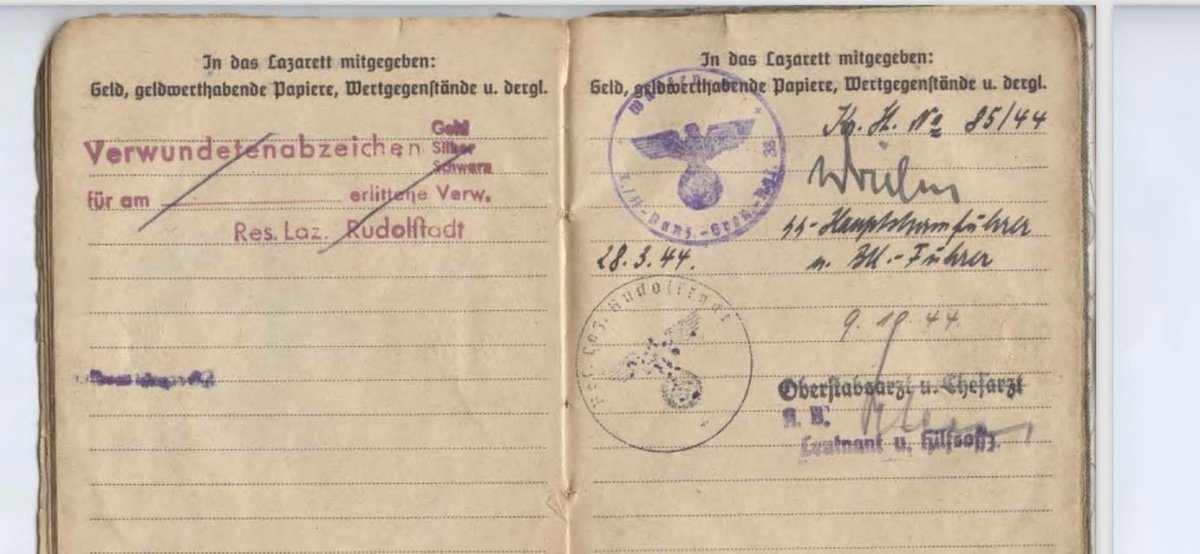 In das Lazarett mitgegeben:
Geld, geldwerthabende Papiere, Wertgegenstände u. dergl.
Verwundetenabzeichen Gold
Silber
Schwarz
für am erlittene Verw.
Res. Laz. Rudolstadt
In das Lazarett mitgegeben:
Geld, geldwerthabende Papiere, Wertgegenstände u. dergl.
Waffen
85/44
SS-Hauptsturmführer
28.3.44.
Res. Laz. Rudolstadt
9. 10. 44
Oberstabsarzt u. Chefarzt
A. B.
Leutnant u. Hilfsoffz.